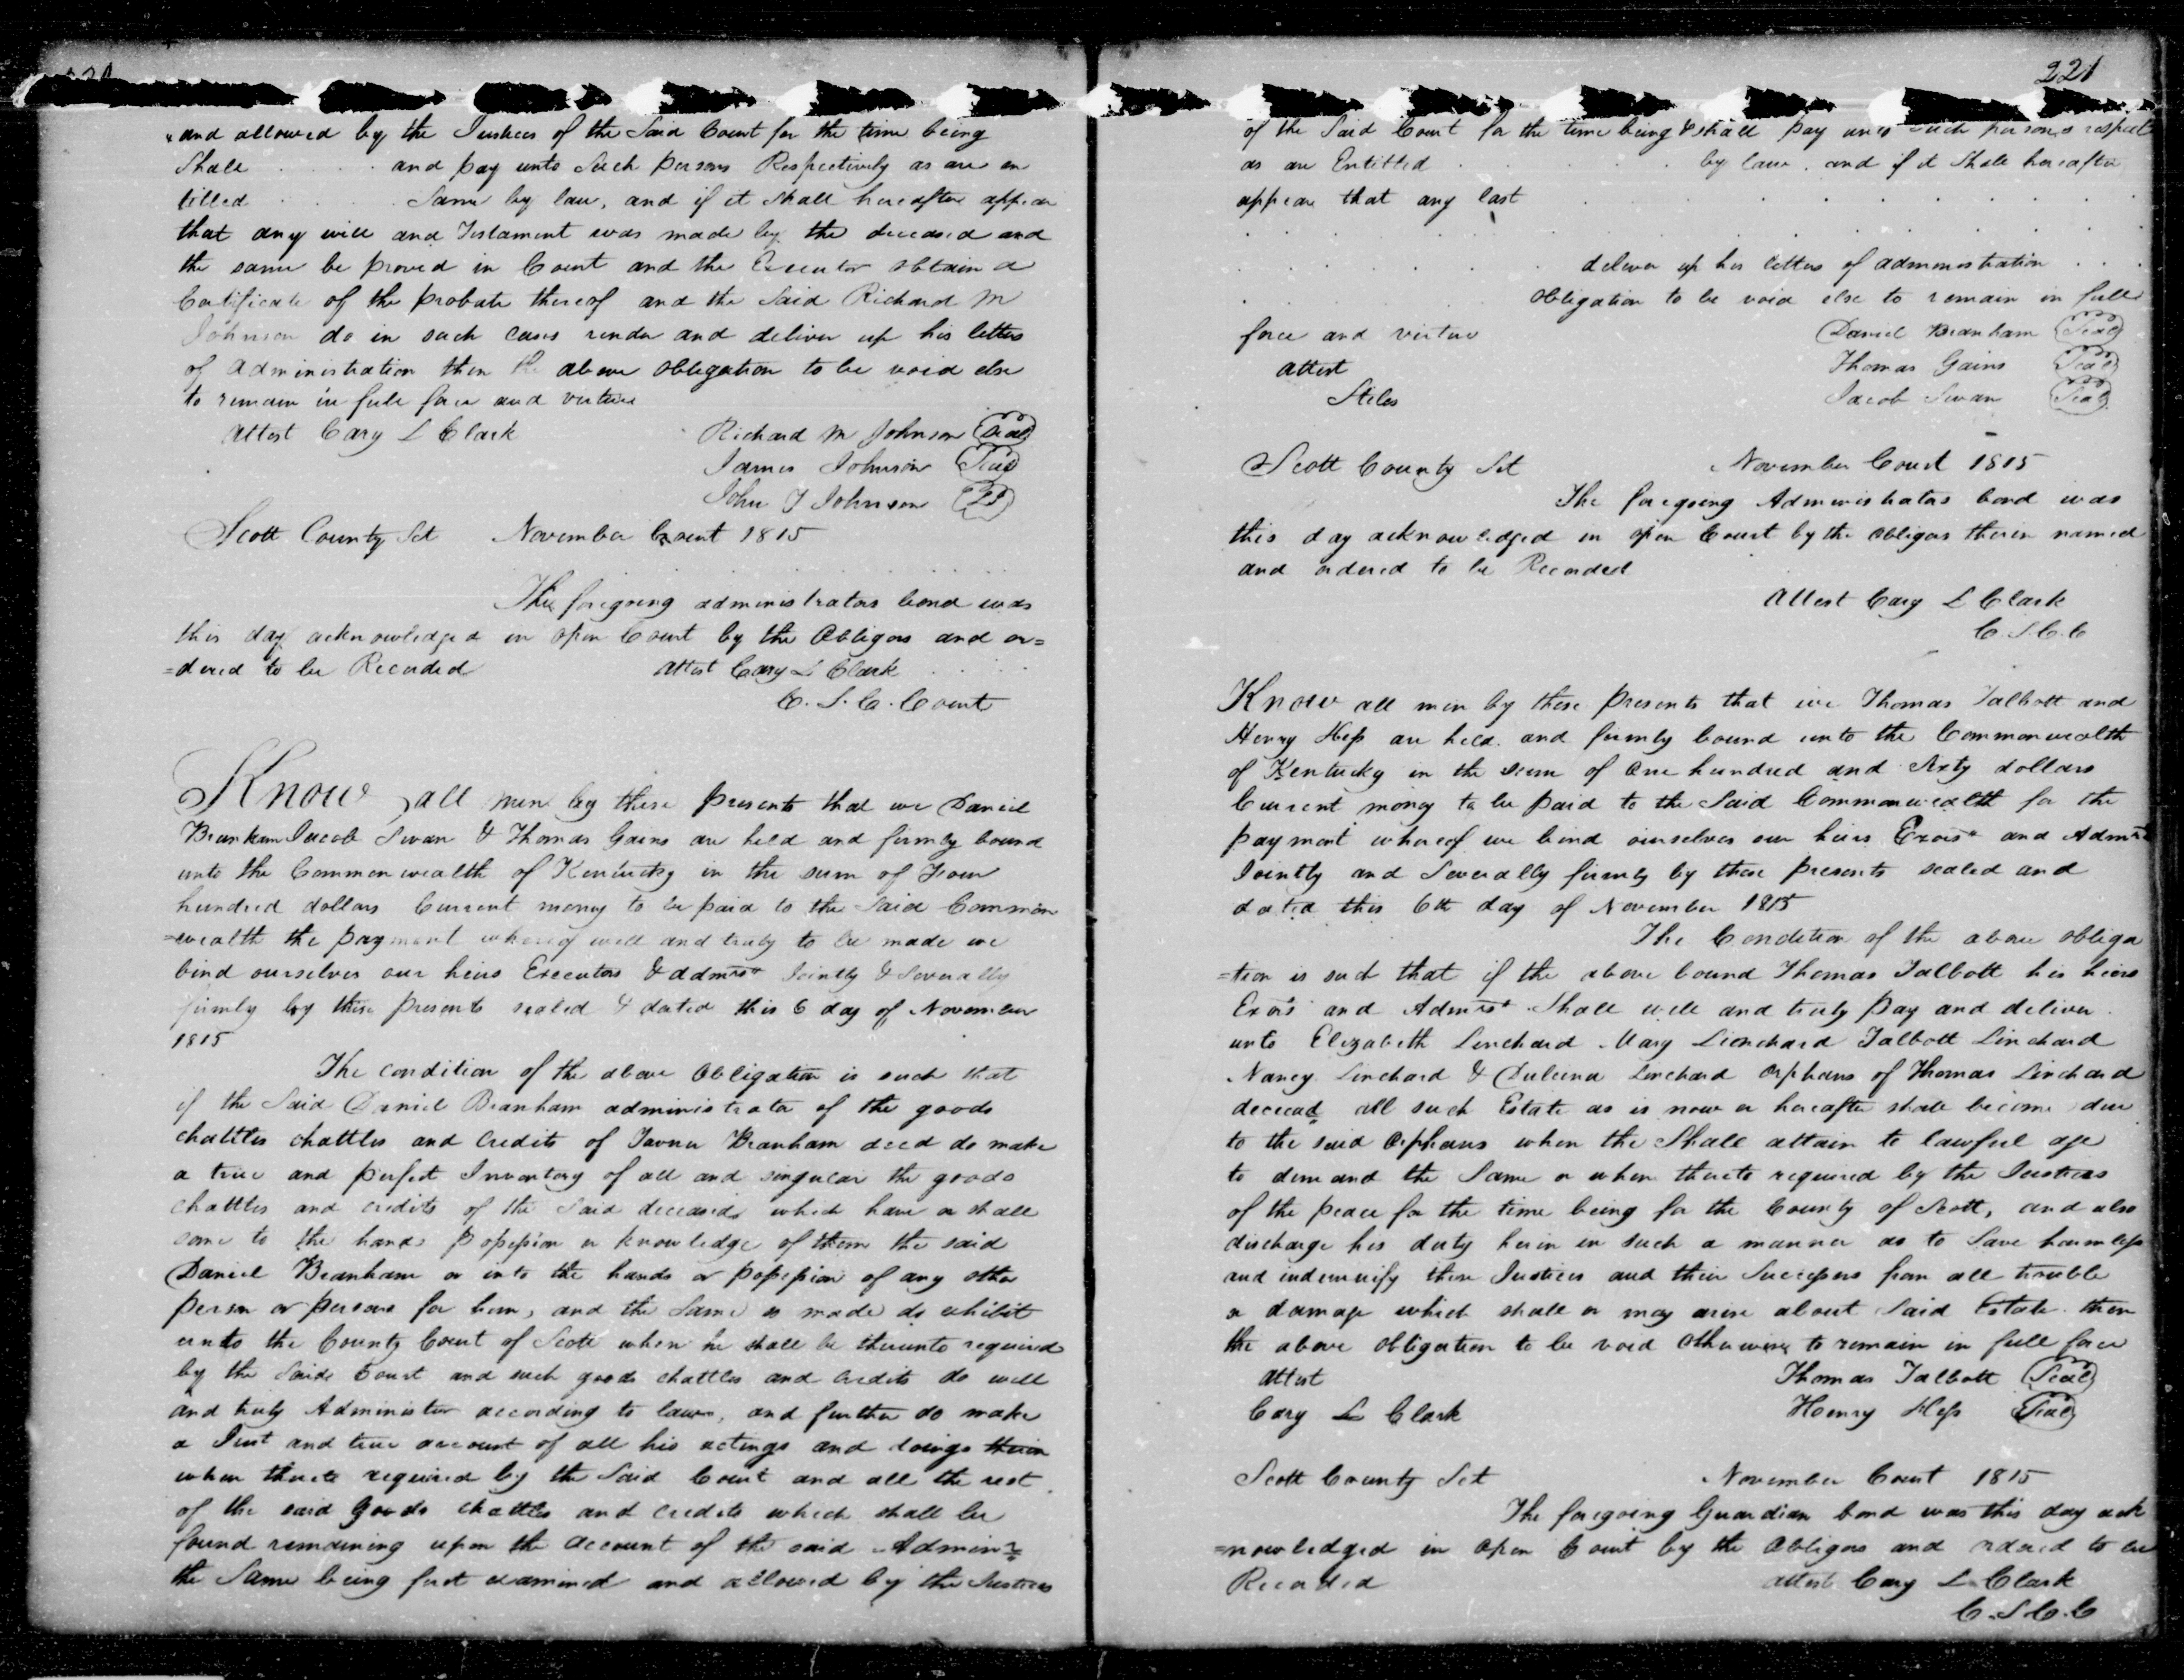 and allowed by the Justices of the Said Court for the time being
Shall . . . . and pay unto Such persons Respectively as are en
titled . . . . Same by law, and if it Shall hereafter appear
that any will and Testament was made by the deceased and
the same be proved in Court and the Executor obtain a
Certificate of the probate thereof and the Said Richard M
Johnson do in such cases render and deliver up his letters
of Administration then the above obligation to be void else
to remain in full force and virtue
Attest Cary L Clark
Richard M Johnson Seal
James Johnson Seal
John T Johnson
Scott County Sct November Court 1815
The foregoing administrators bond was
this day acknowledged in open Court by the Obligors and or=
=dered to be Recorded Attest Cary L Clark
C. S. C. Court
Know all men by these presents that we Daniel
Branham Jacob Swan & Thomas Gains are held and firmly bound
unto the Commonwealth of Kentucky in the sum of Four
hundred dollars Current money to be paid to the Said Common
=wealth the payment whereof well and truly to be made we
bind ourselves our heirs Executors & admrs Jointly & Severally
firmly by these presents sealed & dated this 6 day of November
1815
The condition of the above Obligation is such that
if the Said Daniel Branham administrator of the goods
chattles chattles and credits of Tavner Branham decd do make
a true and perfect Inventory of all and singular the goods
chattles and credits of the Said deceased which have or shall
come to the hands possession or knowledge of them the said
Daniel Branham or into the hands or possession of any other
person or persons for him, and the Same so made do exhibit
unto the County Court of Scott when he shall be thereunto required
by the Said Court and such goods chattles and credits do well
and truly Administer according to law, and further do make
a Just and true account of all his actings and doings therein
when thereto required by the Said Court and all the rest
of the said Goods chattles and credits which shall be
found remaining upon the account of the said Adminr
the Same being first examined and allowed by the Justices
221
of the Said Court for the time being & shall pay unto such persons respect
as are Entitled . . . . by law. and if it Shall hereafter
appear that any last . . . . . . . .
. . . . . . . . . . . .
. . . . deliver up his letters of administration . . .
. . . . obligation to be void else to remain in full
force and virtue
Daniel Branham Seal
Attest
Thomas Gains Seal
Stiles
Jacob Swan Seal
Scott County Sct November Court 1815
The foregoing Administrators bond was
this day acknowledged in open Court by the obligors therein named
and ordered to be Recorded
Attest Cary L Clark
C. S. C. C
Know all men by these presents that we Thomas Talbott and
Henry Hess are held and firmly bound unto the Commonwealth
of Kentucky in the sum of One hundred and Sixty dollars
Current money to be paid to the Said Commonwealth for the
payment whereof we bind ourselves our heirs Exors and Admrs
Jointly and Severally firmly by these presents sealed and
dated this 6th day of November 1815
The Condition of the above obliga
=tion is such that if the above bound Thomas Talbott his heirs
Exors and Admrs Shall well and truly pay and deliver
unto Elizabeth Linchard Mary Lienchard Talbott Linchard
Nancy Linchard & Dulcina Linchard Orphans of Thomas Linchard
deceead all such Estate as is now or hereafter shall become due
to the said Orphans when the Shall attain to lawful age
to demand the Same or when thereto required by the Justices
of the peace for the time being for the County of Scott, and also
discharge his duty herin in such a manner as to Save harmless
and indemnify these Justices and their Successors from all trouble
or damage which shall or may arise about Said Estate then
the above obligation to be void otherwise to remain in full force
Attest Thomas Talbott Seal
Cary L Clark Henry Hess Seal
Scott County Sct November Court 1815
The foregoing Guardian bond was this day ack
=nowledged in open Court by the Obligors and ordered to be
Recorded Attest Cary L Clark
C. S. C. C